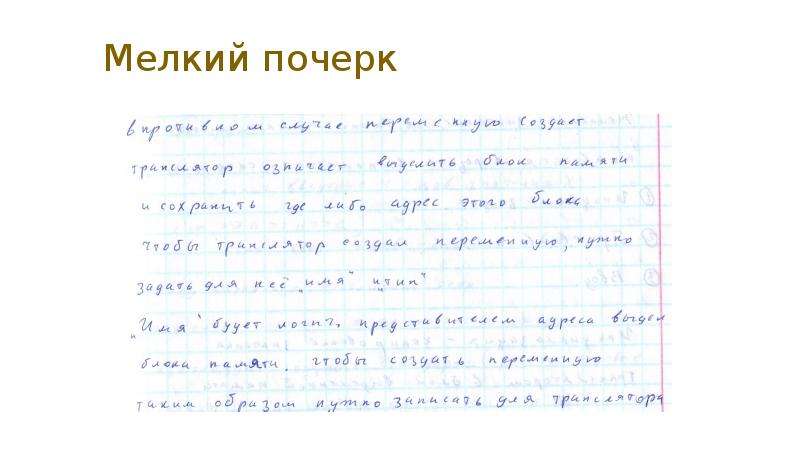 Мелкий почерк
в противном случае переменную создает
транслятор означает выделить блок памяти
и сохранить где либо адрес этого блока
чтобы транслятор создал переменную, нужно
задать для неё "имя" и "тип"
"Имя" будет логич. представителем адреса выдел
блока памяти. чтобы создать переменную
таким образом нужно записать для транслятора